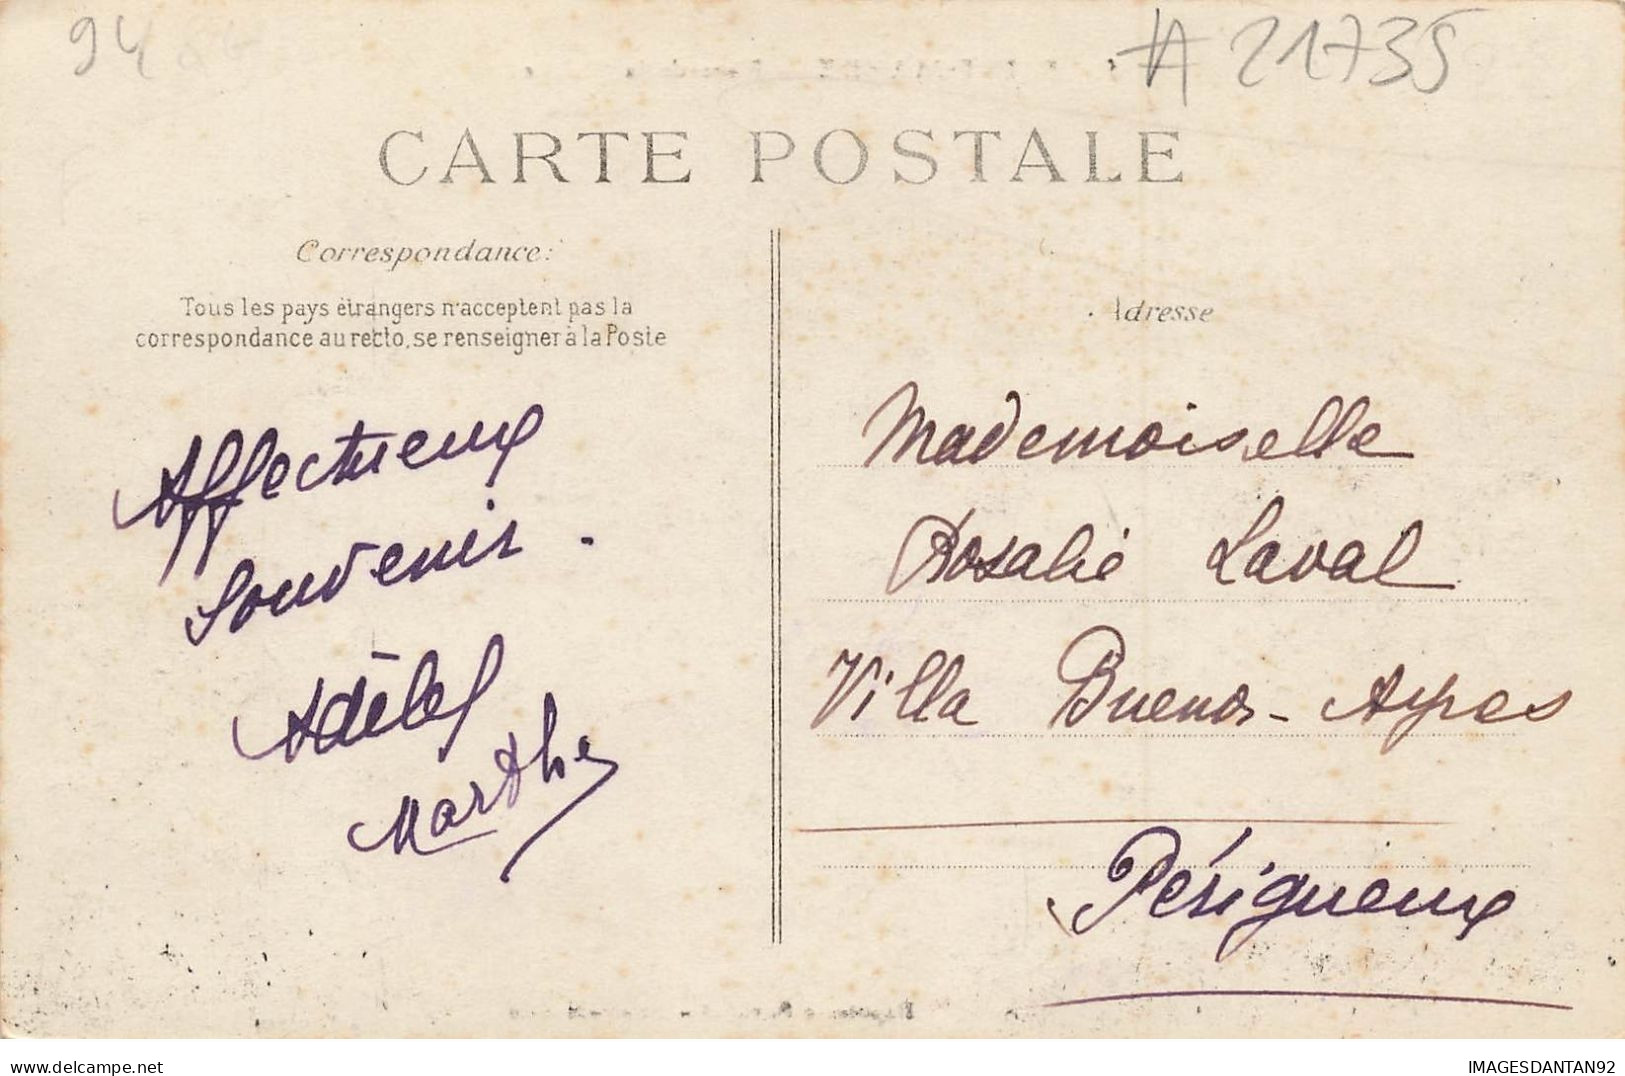 94
A 21735
CARTE POSTALE
Correspondance:
Tous les pays étrangers n'acceptent pas la
correspondance au recto, se renseigner à la Poste
Affectueux
Souvenir.
Adèle
Marthe
Adresse
Mademoiselle
Rosalie Laval
Villa Buenos-Ayres
Périgueux
IMAGESDANTAN92